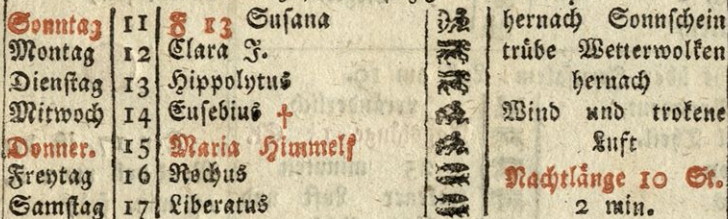 Sonntag 11 F 13 Susana hernach Sonnschein
Montag 12 Clara J. trübe Wetterwolken
Dienstag 13 Hippolytus hernach
Mitwoch 14 Eusebius † Wind und trokene
Donner. 15 Maria Himmelf Luft
Freytag 16 Rochus Nachtlänge 10 St.
Samstag 17 Liberatus 2 min.